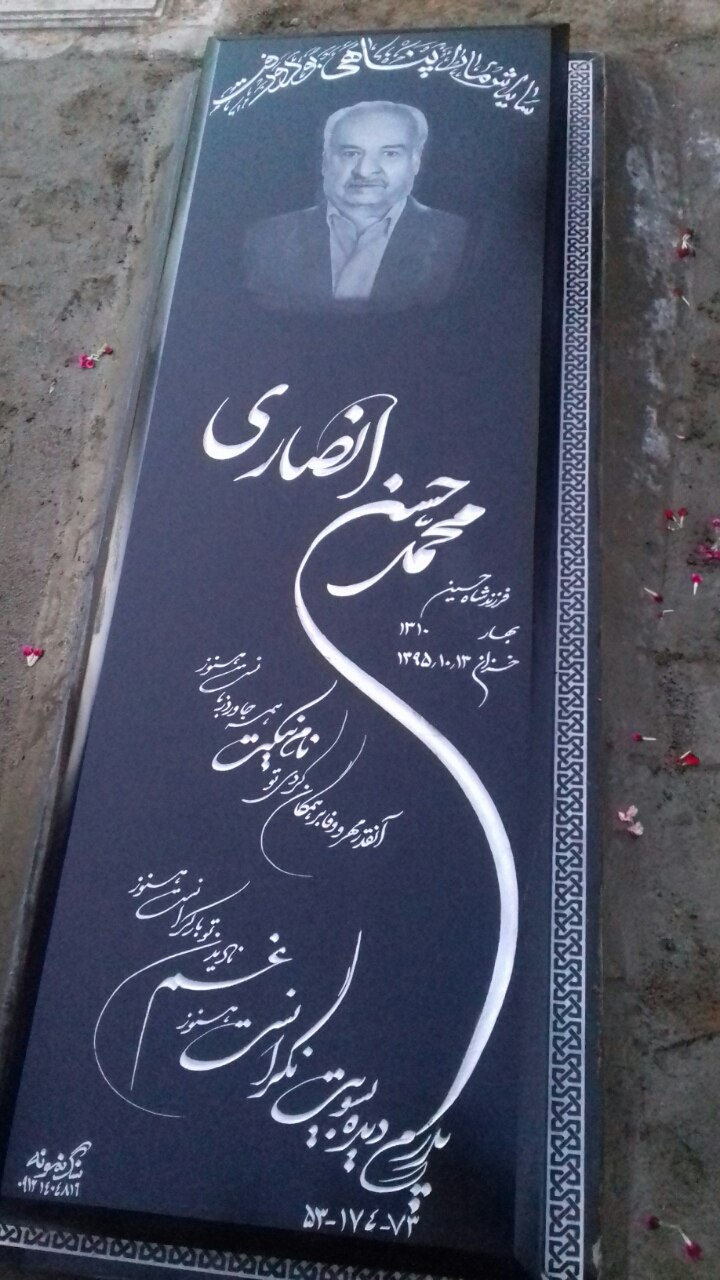 سایه اش مارا پناهی بود و رفت
محمد حسن انصاری
فرزند شاه حسین
بهار ۱۳۱۰
خزان ۱۳٫۱۰٫۱۳۹۵
آنقدر مهر و وفا بر همگان کردی تو
نام نیکیت همه جا ورد زبانست هنوز
پدرم دیده بسویت نگرانست هنوز
غم نادیدن تو بار گرانست هنوز
۵۳-۱۷۴-۷۳
سنگ نمونه
۰۹۱۲ ۱۴۰۴۸۱۹